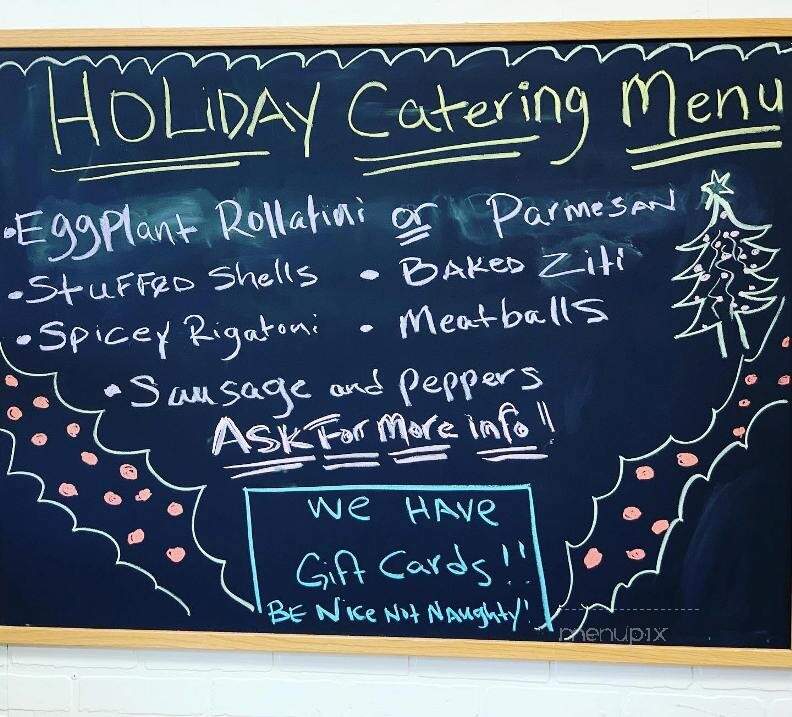 HOLiDAY Catering Menu
• Eggplant Rollatini or Parmesan
• Stuffed Shells • Baked Ziti
• Spicey Rigatoni • Meatballs
• Sausage and Peppers
Ask For More info!!
We HAVe
Gift Cards!!
BE Nice Not Naughty!
menupix